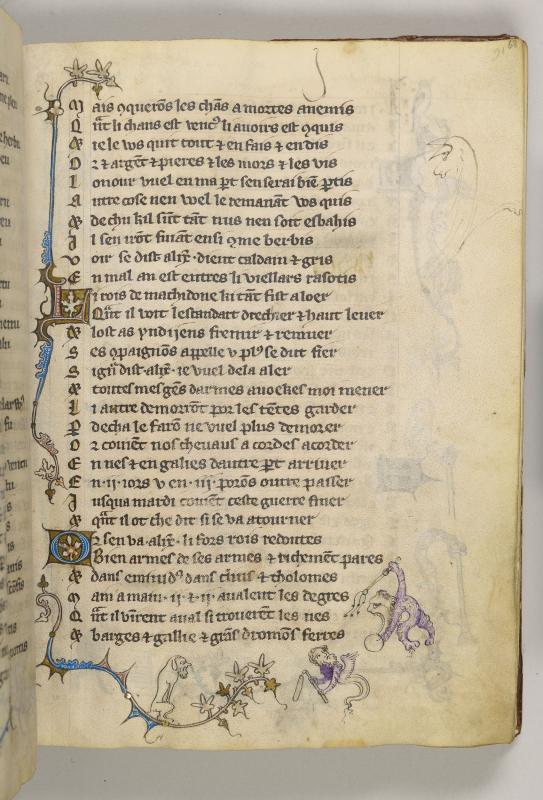 M ais qquerōs les chās a mortes anemis
Q n̄t li chans est vencꝰ li auoirs est ꝯquis
⁊ ie le vos quit tout ⁊ en fais ⁊ en dis
O r ⁊ argēt ⁊ pieres ⁊ les mors ⁊ les vis
L onour vuel en ma pt sen serai biē ptis
A utre cose nen voel le remanāt vos quis
⁊ de chu kil sūt tāt nus nen soit esbahis
I l sen irōt fuiant ensi ꝯme berbis
V oir se dist alix̄ · dient caldain ⁊ gris
E n mal an est entres li viellars rasotis
L i rois de machidone ki tāt fist a loer
Q n̄t il voit lestandart drechier ⁊ haut leuer
⁊ lost as yndijens fremir ⁊ remuer
S es ꝯpaignōs appelle v plꝰ se dut fier
S ign̄ dist alix̄ · ie vuel dela aler
⁊ toutes mes gēs darmes auoekes moi mener
L i autre demorōt por les tētes garder
P decha le farō ne vuel plus demorer
O r couiēt nos cheuaus a cordes acorder
E n nes ⁊ en galies dautre pt arriuer
E n · ii · iors v en · iii · porōs outre passer
I usqua mardi couiēt ceste guerre finer
⁊ qn̄t il ot che dit si se va atourner
O r sen va · alix̄ · li fors rois redoutes
Bien armes de ses armes ⁊ richemēt pares
⁊ dans emenidꝰ dans clins ⁊ tholomes
M am a main · ii · ⁊ · ii · aualent les degres
Q n̄t il vinrent aual si trouerēt les nes
⁊ barges ⁊ gallie ⁊ grās dromōs ferres